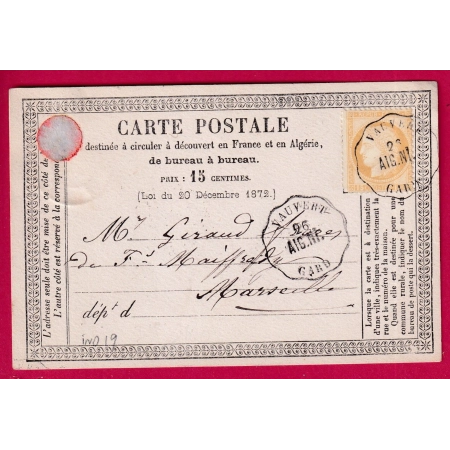 CARTE POSTALE
destinée à circuler à découvert en France et en Algérie,
de bureau à bureau.
PRIX : 15 CENTIMES.
(Loi du 20 Décembre 1872.)
L'adresse seule doit être mise de ce côté de
L'autre côté est réservé à la correspon
VAUVERT
26
AIG.NI.
GARD
VAUVERT
26
AIG.NI.
GARD
Mr Giraud
Marseille
dépt d
Lorsque la carte est à destination
d'une ville, indiquer très-exactement la
rue et le numéro de la maison.
Quand elle est destinée
commune rurale, indiquer le nom du
bureau de poste qui la dessert.
IND 19